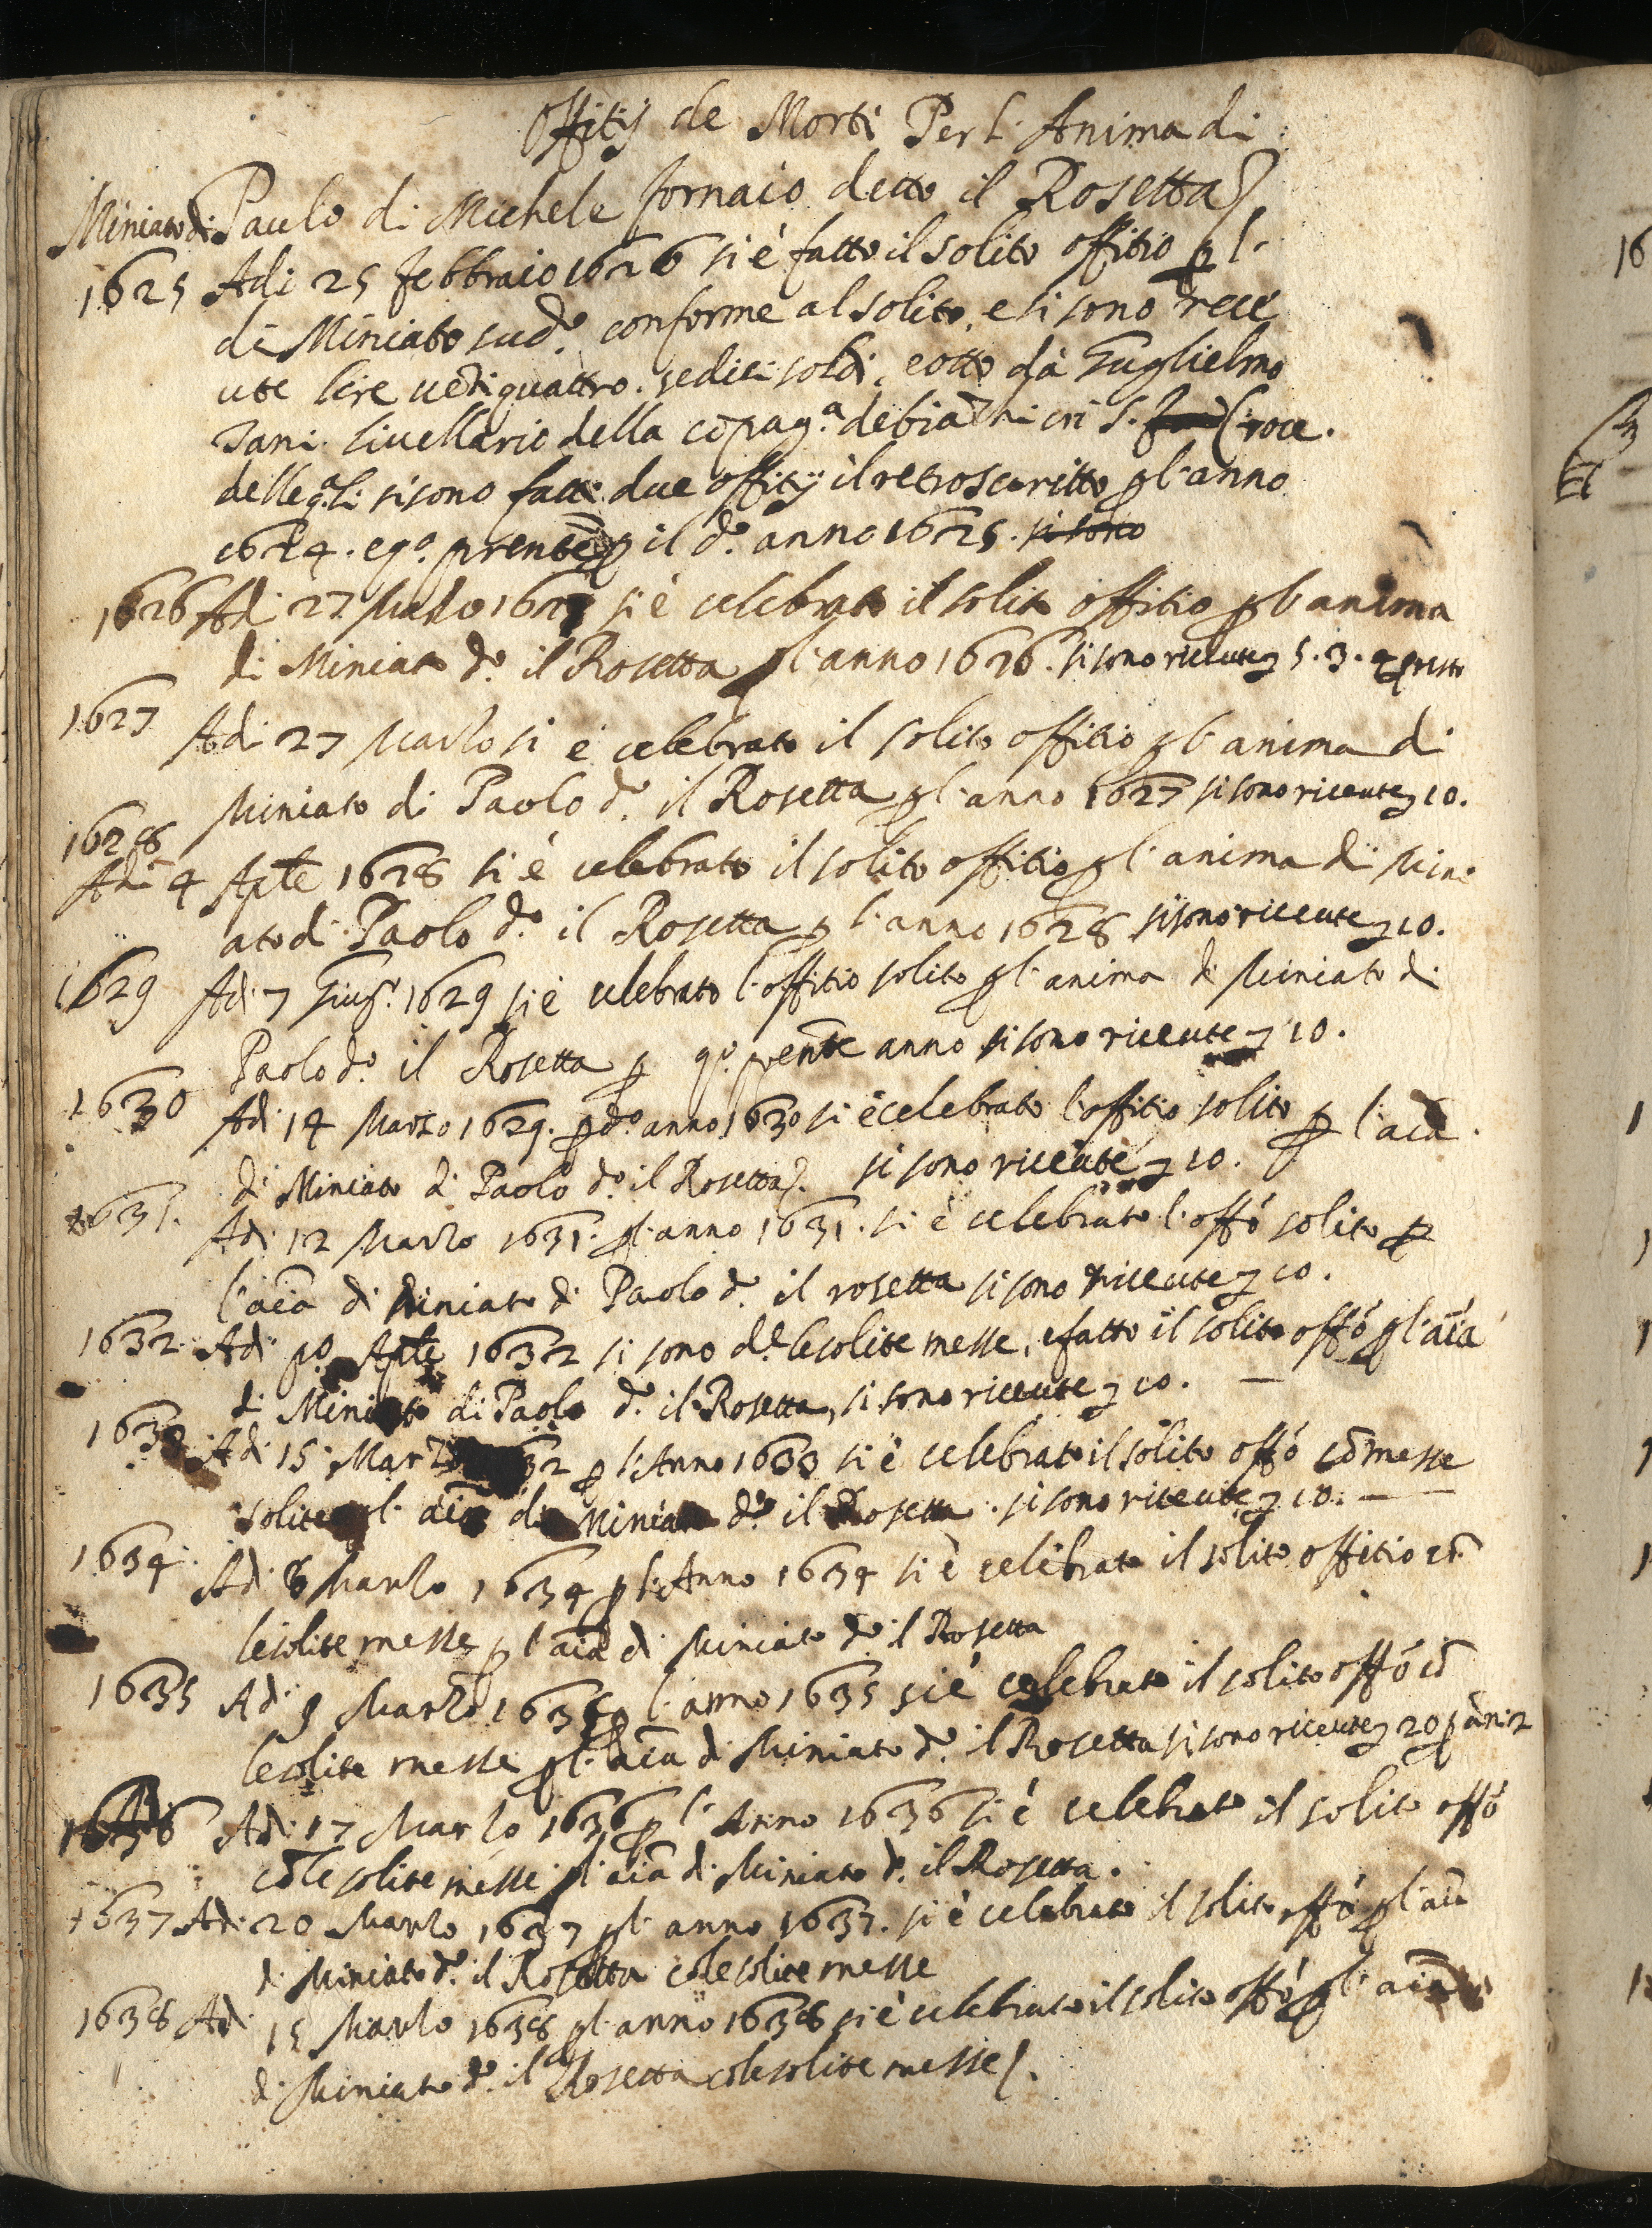 Offitij de Morti Per l'Anima di
Miniato di Paulo di Michele fornaio detto il Rosetta
1625 Adi 25 febbraio 1626 si è fatto il solito offitio p l'
di Miniato sud.º conforme al solito, e si sono rece
ute lire uẽtiquattro. sedici soldi, e otto dà Guglielmo
Tani liuellario della cõpag.ª de biãchi in S. Croce.
delle q.li si sono fatti due offitij il retroscritto p l'anno
1624. e q.º prente p il d.º anno 1625. si sono
1626 Adi 27 Marzo 1627 si è celebrato il solito offitio p l'anima
di Miniato d.º il Rosetta p l'anno 1626. si sono riceute 5.3.4 p resto
1627 Adi 27 Marzo si è celebrato il solito offitio p l'anima di
Miniato di Paolo d.º il Rosetta p l'anno 1627 si sono riceute 10.
1628
Adi 4 Aple 1628 si è celebrato il solito offitio p l'anima di Mini
ato di Paolo d.º il Rosetta p l'anno 1628 si sono riceute 10.
1629 Adi 7 Giug.º 1629 si è celebrato l'offitio solito p l'anima di Miniato di
Paolo d.º il Rosetta p q.º prente anno si sono riceute 10.
1630 Adi 14 Marzo 1629. p d.º anno 1630 si è celebrato l'offitio solito p l'aĩa
di Miniato di Paolo d.º il Rosetta. si sono riceute 10.
1631. Adi 12 Marzo 1631. p l'anno 1631. si è celebrato l'offõ solito p
l'aĩa di Miniato di Paolo d.º il rosetta si sono riceute 10.
1632 Adi p.º Aple 1632 si sono d.e le solite messe, e fatto il solito offõ p l'aĩa
di Miniato di Paolo d.º il Rosetta, si sono riceute 10.
1633 Adi 15 Marzo 1632 p l'Anno 1633 si è celebrato il solito offõ cõ messe
solite p l'aĩa di Miniato d.º il Rosetta. si sono riceute 10.
1634 Adi 8 Marzo 1634 p l'Anno 1634 si è celebrato il solito offitio cõ
le solite messe p l'aĩa di Miniato d.º il Rosetta
1635 Adi 9 Marzo 1635 p l'anno 1635 si è celebrato il solito offõ cõ
le solite messe p l'aĩa di Miniato d.º il Rosetta si sono riceute 20 p ãni 2
1636 Adi 17 Marzo 1636 p l'Anno 1636 si è celebrato il solito offõ
cõ le solite messe p l'aĩa di Miniato d.º il Rosetta.
1637 Adi 20 Marzo 1637 p l'anno 1637. si è celebrato il solito offõ p l'aĩa
di Miniato d.º il Rosetta cõ le solite messe
1638 Adi 15 Marzo 1638 p l'anno 1638 si è celebrato il solito offõ p l'aĩa
di Miniato d.º il Rosetta cõ le solite messe.